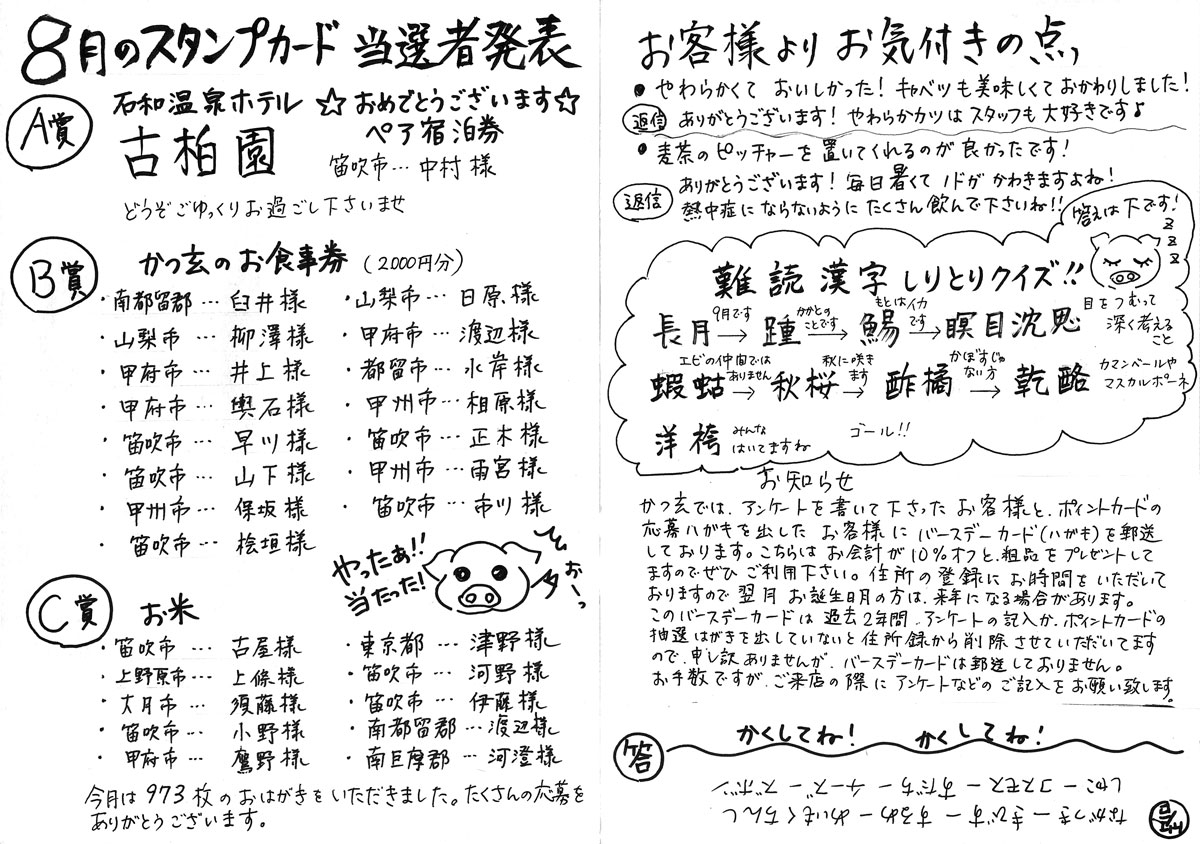 8月のスタンプカード 当選者発表
A賞
石和温泉ホテル ☆おめでとうございます☆
古柏園 ペア宿泊券
笛吹市…中村様
どうぞごゆっくりお過ごし下さいませ
B賞 かつ玄のお食事券 (2000円分)
・南都留郡…臼井様 ・山梨市…日原様
・山梨市…柳澤様 ・甲府市…渡辺様
・甲府市…井上様 ・都留市…水岸様
・甲府市…輿石様 ・甲州市…相原様
・笛吹市…早川様 ・笛吹市…正木様
・笛吹市…山下様 ・甲州市…雨宮様
・甲州市…保坂様 ・笛吹市…市川様
・笛吹市…桧垣様
やったぁ!!
当たった!
C賞 お米
・笛吹市…古屋様 ・東京都…津野様
・上野原市…上條様 ・笛吹市…河野様
・大月市…須藤様 ・笛吹市…伊藤様
・笛吹市…小野様 ・南都留郡…渡辺様
・甲府市…鷹野様 ・南巨摩郡…河澄様
今月は973枚のおはがきをいただきました。たくさんの応募を
ありがとうございます。
お客様よりお気付きの点
●やわらかくておいしかった!キャベツも美味しくておかわりしました!
返信 ありがとうございます!やわらかカツはスタッフも大好きです♪
●麦茶のピッチャーを置いてくれるのが良かったです!
返信 ありがとうございます!毎日暑くてノドがかわきますよね!
熱中症にならないようにたくさん飲んで下さいね!!
答えは下です!
難読漢字しりとりクイズ!!
長月 9月です→ 踵 かかとのことです→ 鯣 もとはイカです→ 瞑目沈思 目をつむって深く考えること
蝦蛄 エビの仲間ではありません→ 秋桜 秋に咲きます→ 酢橘 かぼすじゃない方→ 乾酪 カマンベールやマスカルポーネ
洋袴 みんなはいてますね ゴール!!
お知らせ
かつ玄では、アンケートを書いて下さったお客様と、ポイントカードの
応募ハガキを出したお客様にバースデーカード(ハガキ)を郵送
しております。こちらはお会計が10%オフと、粗品をプレゼントして
ますのでぜひご利用下さい。住所の登録にお時間をいただいて
おりますので翌月お誕生日月の方は、来年になる場合があります。
このバースデーカードは過去2年間、アンケートの記入か、ポイントカードの
抽選はがきを出していないと住所録から削除させていただいてます
ので、申し訳ありませんが、バースデーカードは郵送しておりません。
お手数ですが、ご来店の際にアンケートなどのご記入をお願い致します。
答 かくしてね! かくしてね!
ながつき―きびす―するめ―めいもくちんし
しゃこ―コスモス―すだち―チーズ―ズボン